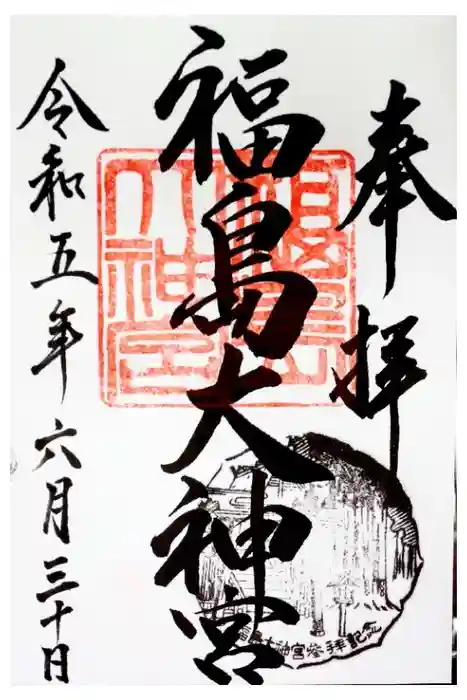 奉拝
福島大神宮
令和五年六月三十日
福島大神宮参拝記念